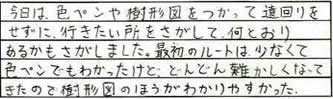 今日は、色ペンや樹形図をつかって遠回りを
せずに、行きたい所をさがして、何とおり
あるかもさがしました。最初のルートは、少なくて
色ペンでもわかったけど、どんどん難かしくなって
きたので樹形図のほうがわかりやすかった。